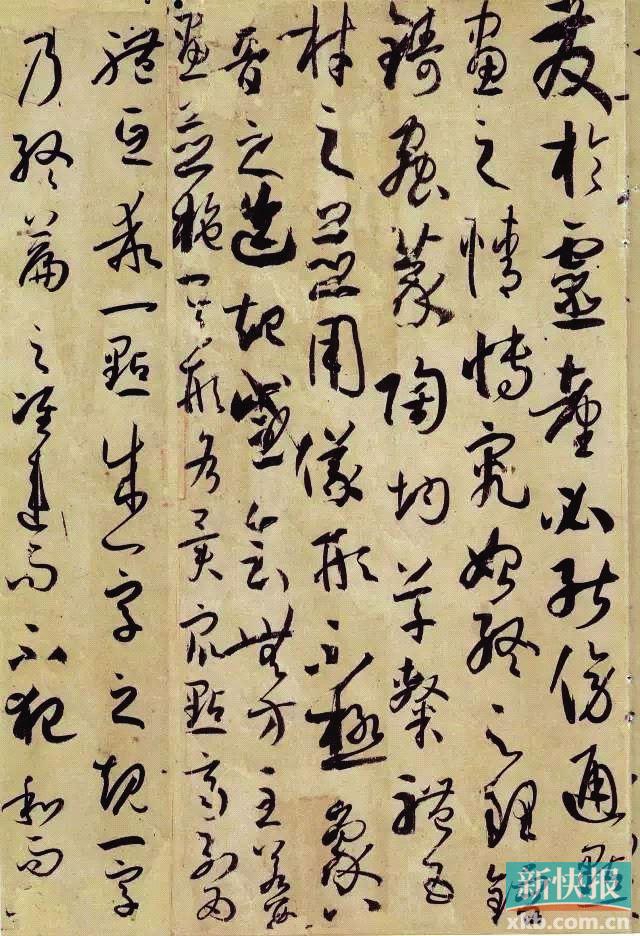 發於靈臺必能傍通點
畫之情博究始終之理鎔
鑄蟲篆陶均草隸體五
材之並用儀形不極象八
音之迭起感會無方至若數
畫並施其形各異衆點齊列爲
體互乖一點成一字之規一字
乃終篇之準違而不犯和而
新快报
xkb.com.cn